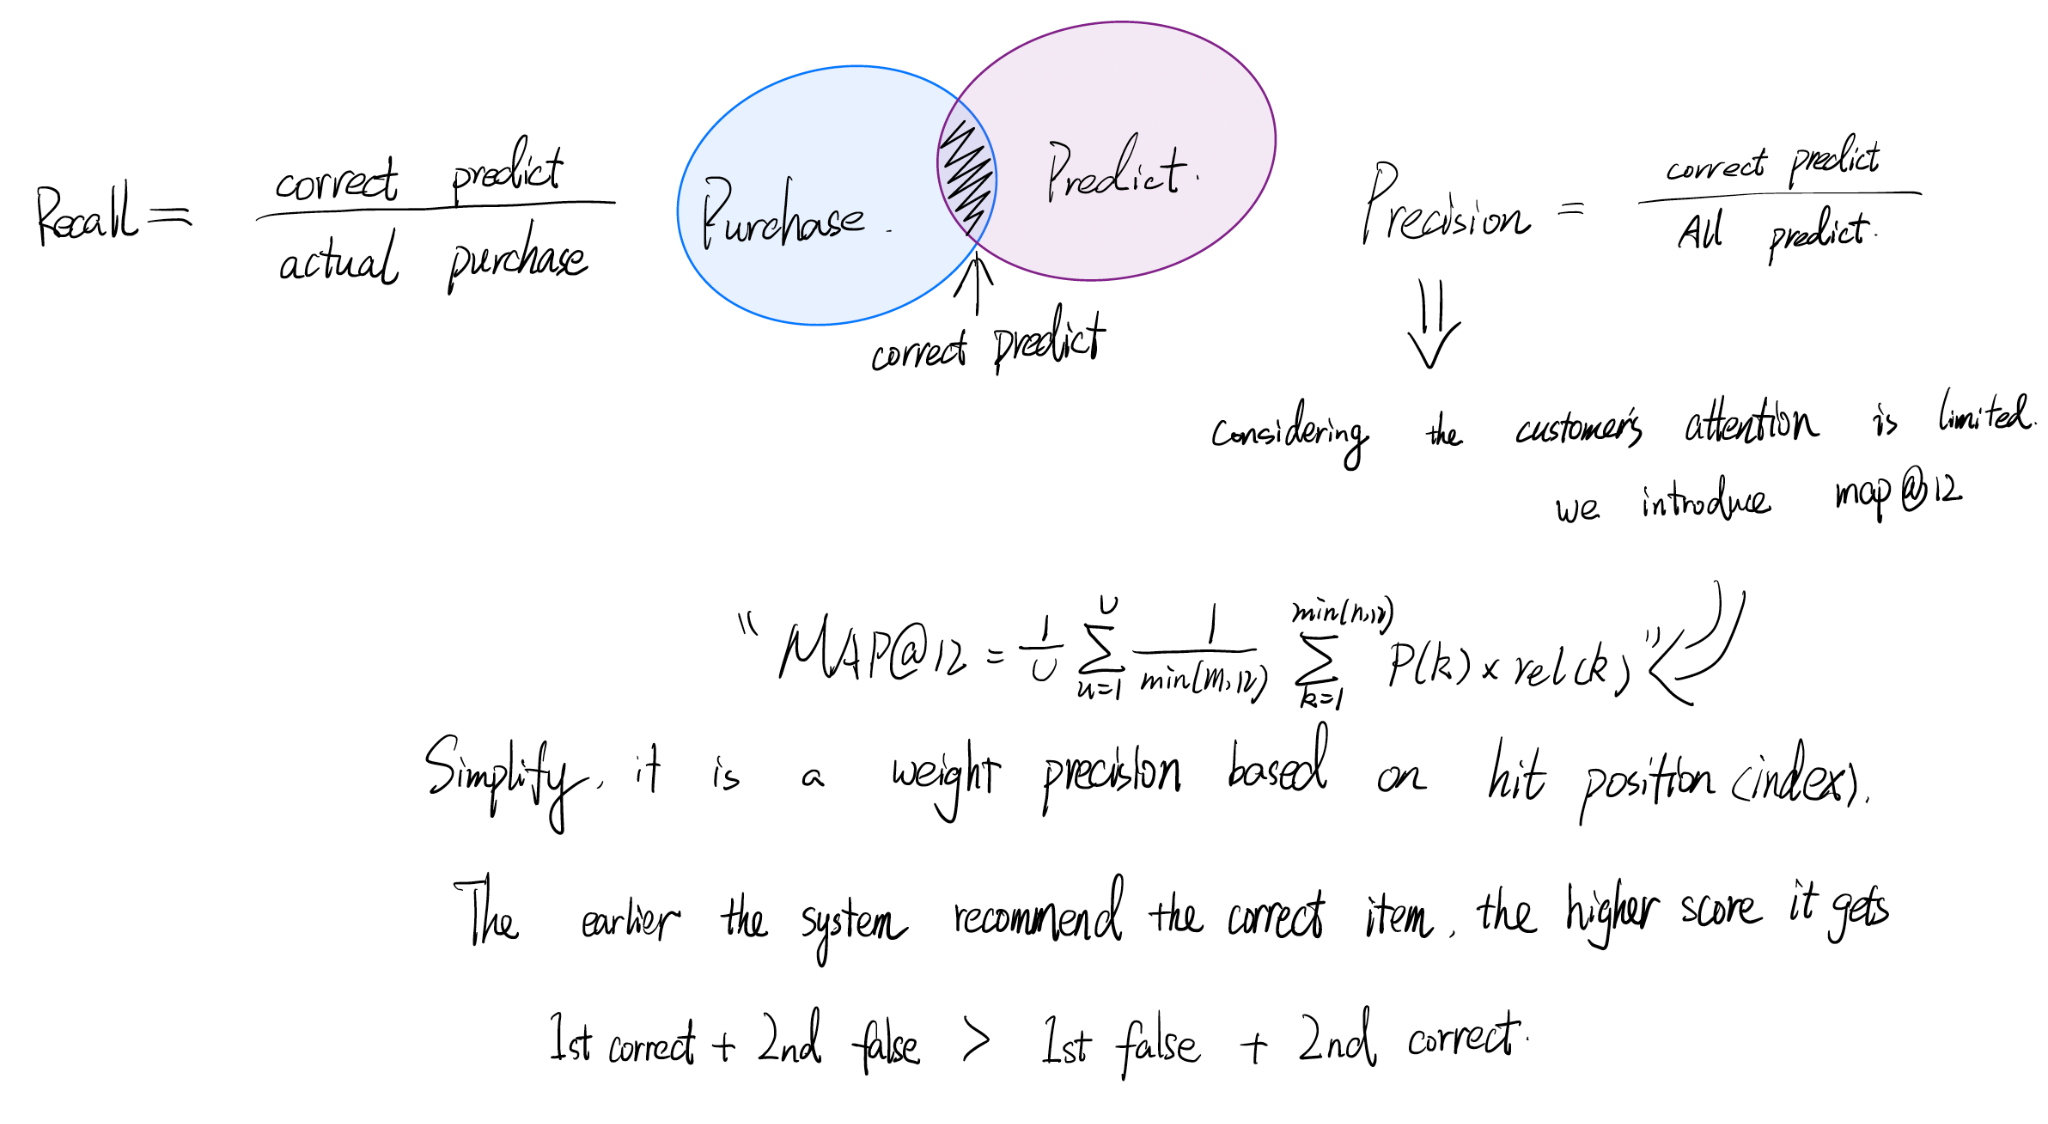 Recall = correct predict / actual purchase
Purchase.
Predict.
correct predict
Precision = correct predict / All predict.
Considering the customer's attention is limited.
we introduce map@12
"MAP@12 = 1/U ∑_{u=1}^{U} 1/min(m,12) ∑_{k=1}^{min(n,12)} P(k) × rel(k)"
Simplify, it is a weight precision based on hit position (index).
The earlier the system recommend the correct item, the higher score it gets
1st correct + 2nd false > 1st false + 2nd correct.